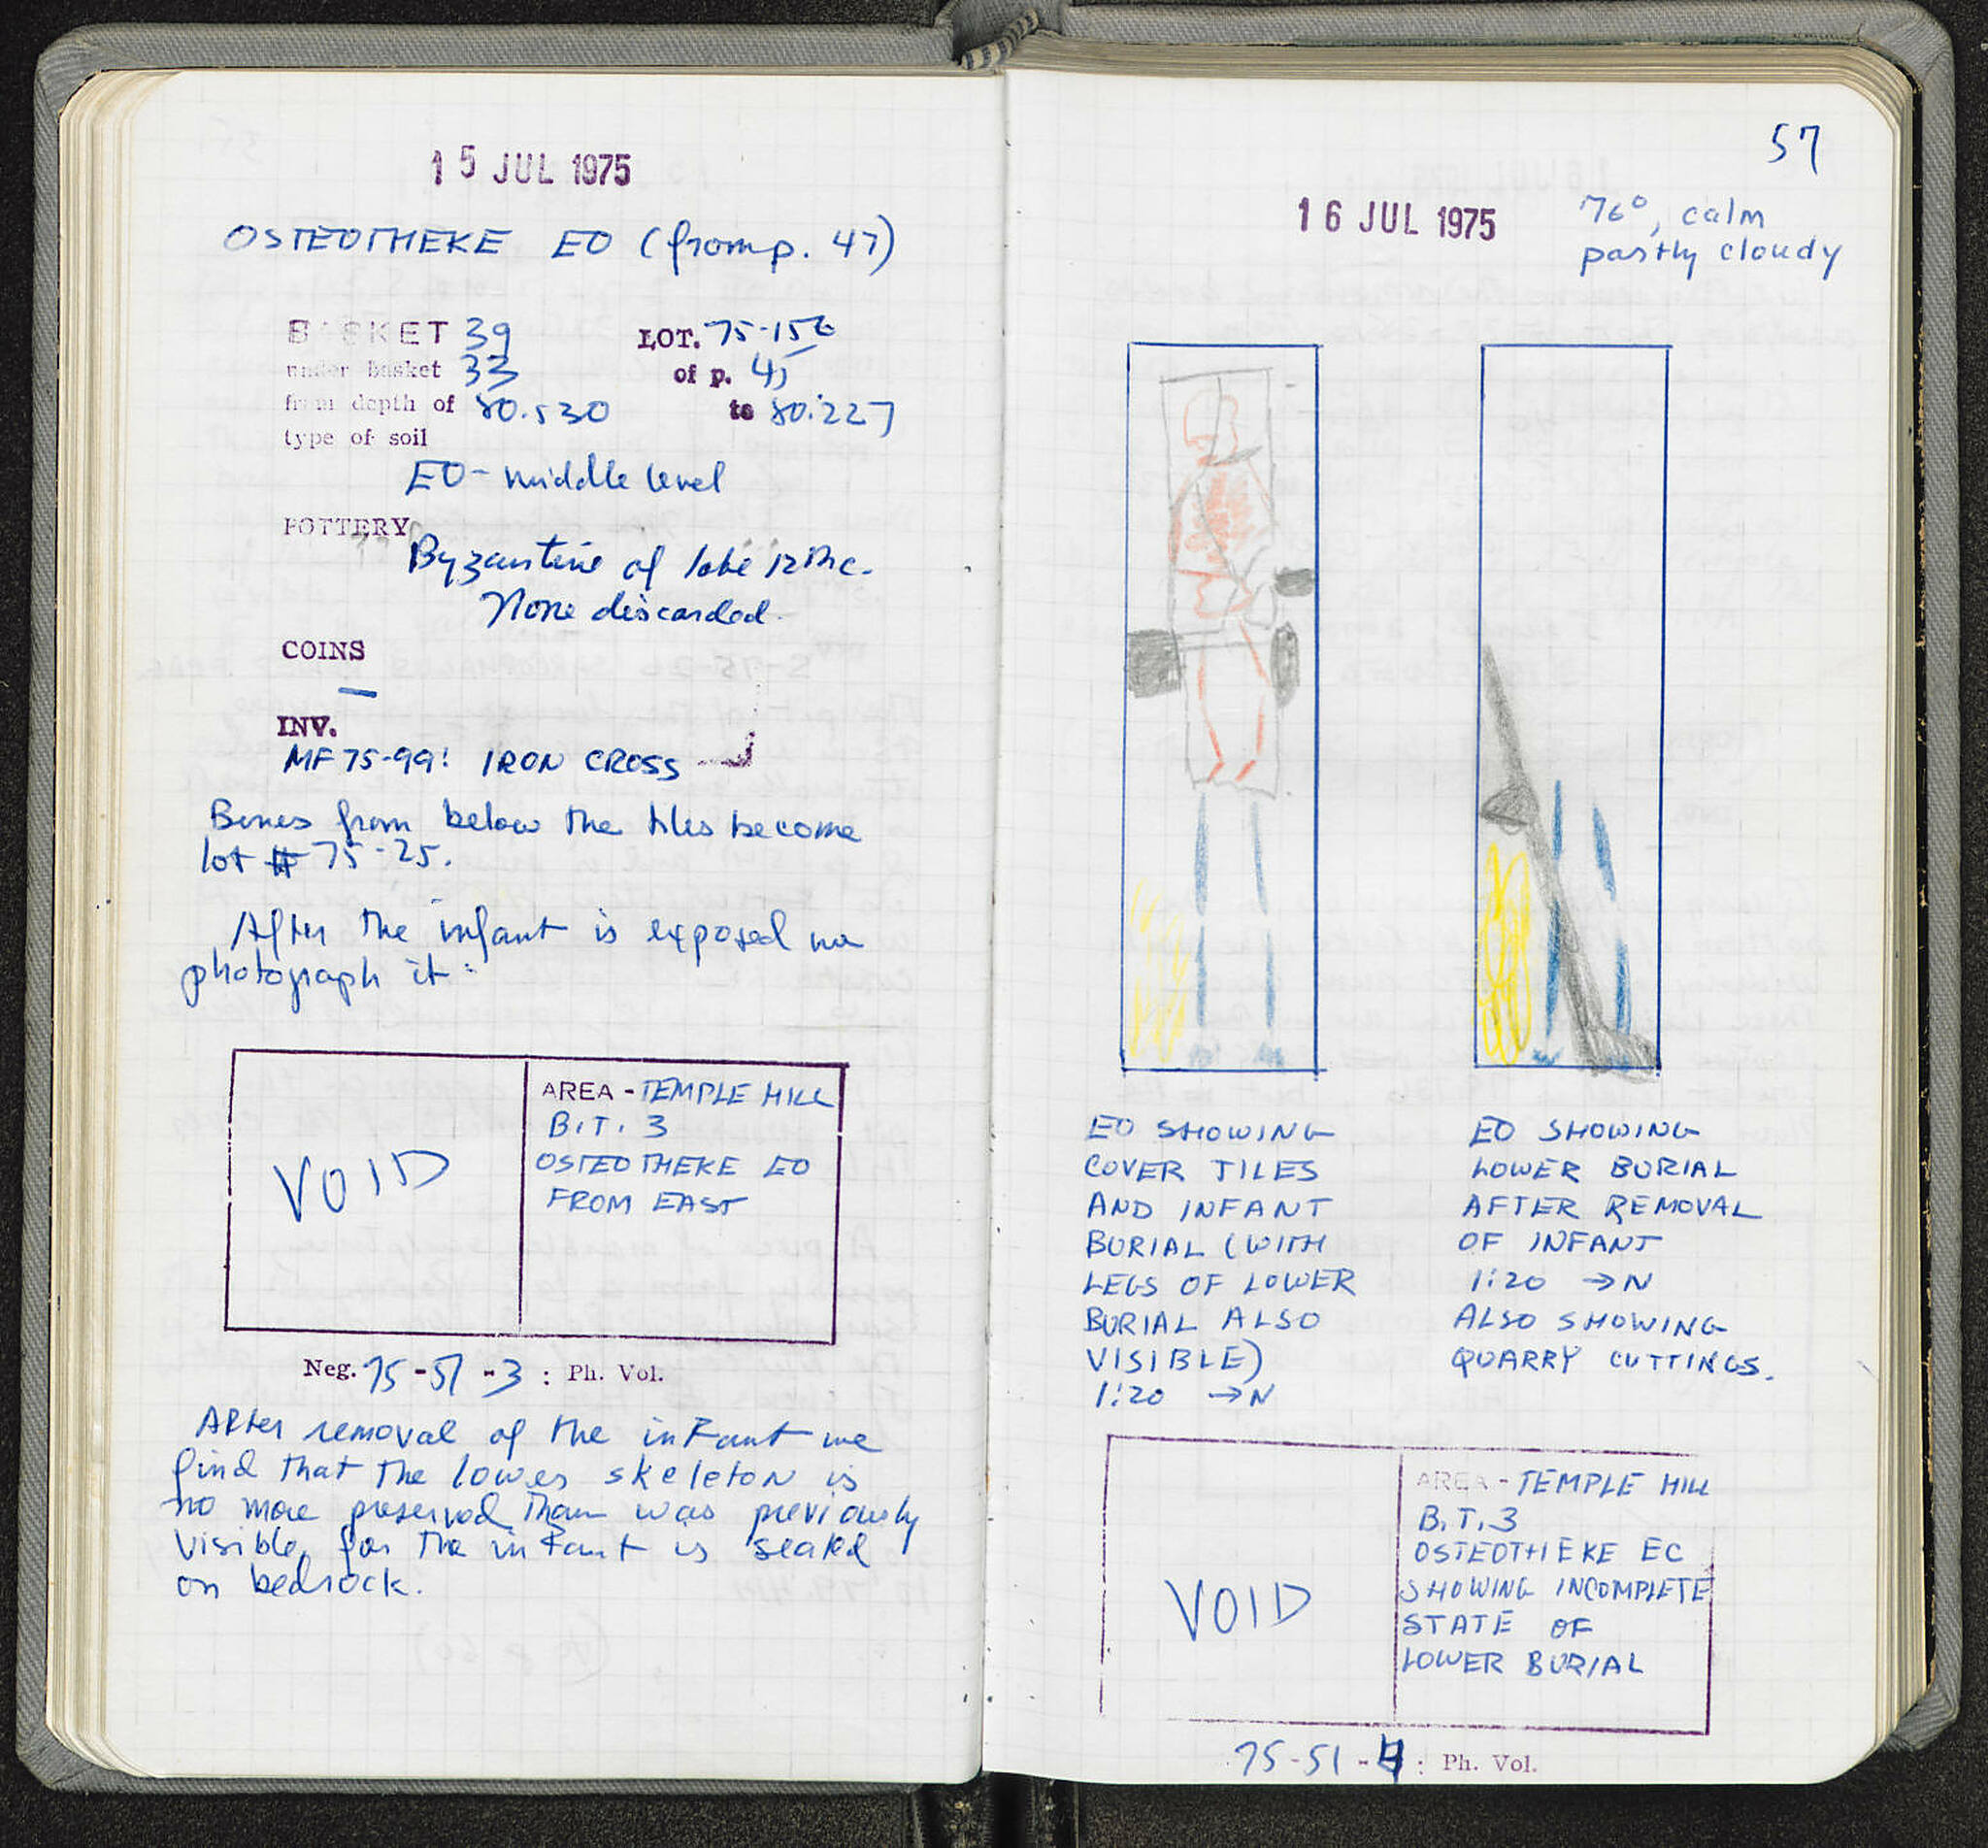 15 JUL 1975
OSTEOTHEKE EO (from p. 47)
BASKET 39 LOT. 75-156
under basket 33 of p. 45
from depth of 80.530 to 80.227
type of soil
EO - middle level
POTTERY
Byzantine of late 12thc.
None discarded.
COINS
—
INV.
MF 75-99: IRON CROSS
Bones from below the tiles become
lot # 75-25.
After the infant is exposed we
photograph it:
VOID
AREA - TEMPLE HILL
B.T. 3
OSTEOTHEKE EO
FROM EAST
Neg. 75-51-3 : Ph. Vol.
After removal of the infant we
find that the lower skeleton is
no more preserved than was previously
visible, for the infant is seated
on bedrock.
57
16 JUL 1975
76°, calm
partly cloudy
EO SHOWING
COVER TILES
AND INFANT
BURIAL (WITH
LEGS OF LOWER
BURIAL ALSO
VISIBLE)
1:20 → N
EO SHOWING
LOWER BURIAL
AFTER REMOVAL
OF INFANT
1:20 → N
ALSO SHOWING
QUARRY CUTTINGS.
VOID
AREA - TEMPLE HILL
B.T. 3
OSTEOTHEKE EO
SHOWING INCOMPLETE
STATE OF
LOWER BURIAL
75-51-4 : Ph. Vol.